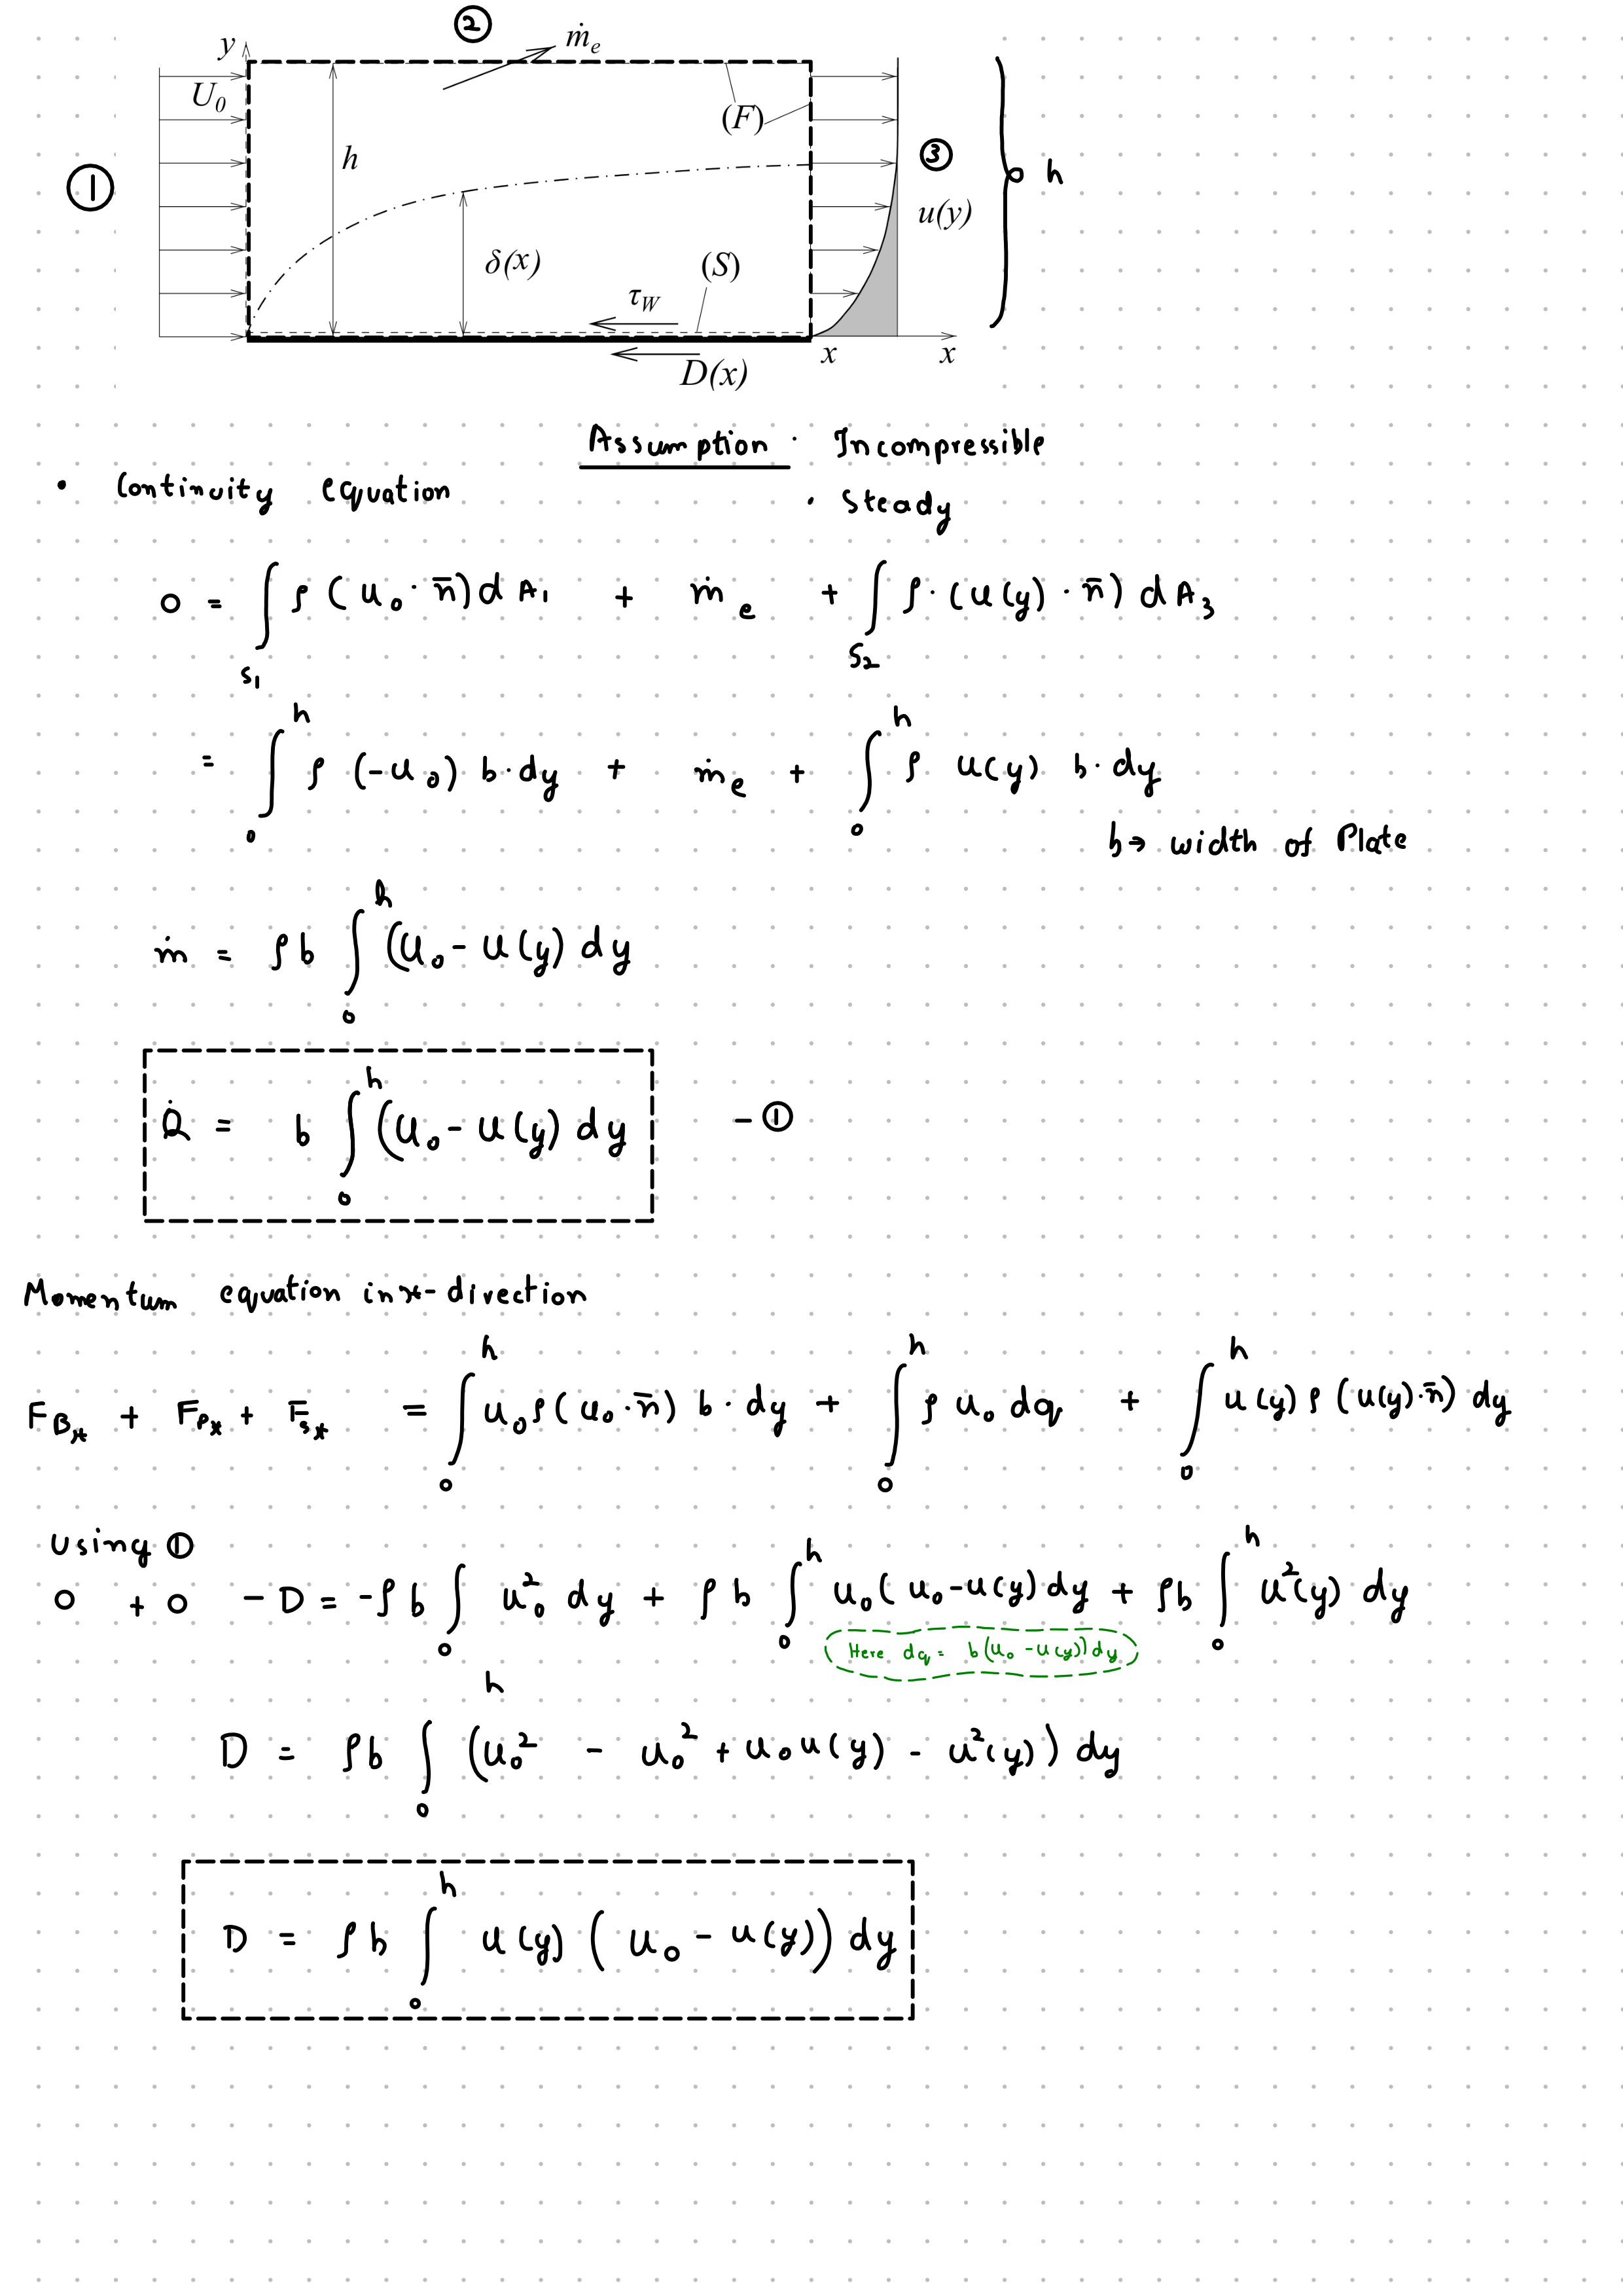 ②
y
ṁₑ
U₀
(F)
①
h
③
h
u(y)
δ(x)
(S)
τ_W
x
x
D(x)
Assumption · Incompressible
• Continuity equation
· Steady
0 = ∫_{S₁} ρ (u₀ · n̄) dA₁ + ṁₑ + ∫_{S₂} ρ · (u(y) · n̄) dA₃
= ∫₀^h ρ (-u₀) b · dy + ṁₑ + ∫₀^h ρ u(y) b · dy
b → width of Plate
ṁ = ρb ∫₀^h (U₀ - u(y) dy
Q̇ = b ∫₀^h (U₀ - u(y) dy - ①
Momentum equation in x-direction
F_{Bx} + F_{Px} + F_{sx} = ∫₀^h u₀ ρ (u₀ · n̄) b · dy + ∫₀^h ρ u₀ dq + ∫₀^h u(y) ρ (u(y) · n̄) dy
using ①
0 + 0 - D = -ρb ∫₀^h u₀² dy + ρb ∫₀^h u₀ (u₀ - u(y) dy + ρb ∫₀^h u²(y) dy
Here dq = b(u₀ - u(y)) dy
D = ρb ∫₀^h (u₀² - u₀² + u₀u(y) - u²(y)) dy
D = ρb ∫₀^h u(y) (u₀ - u(y)) dy